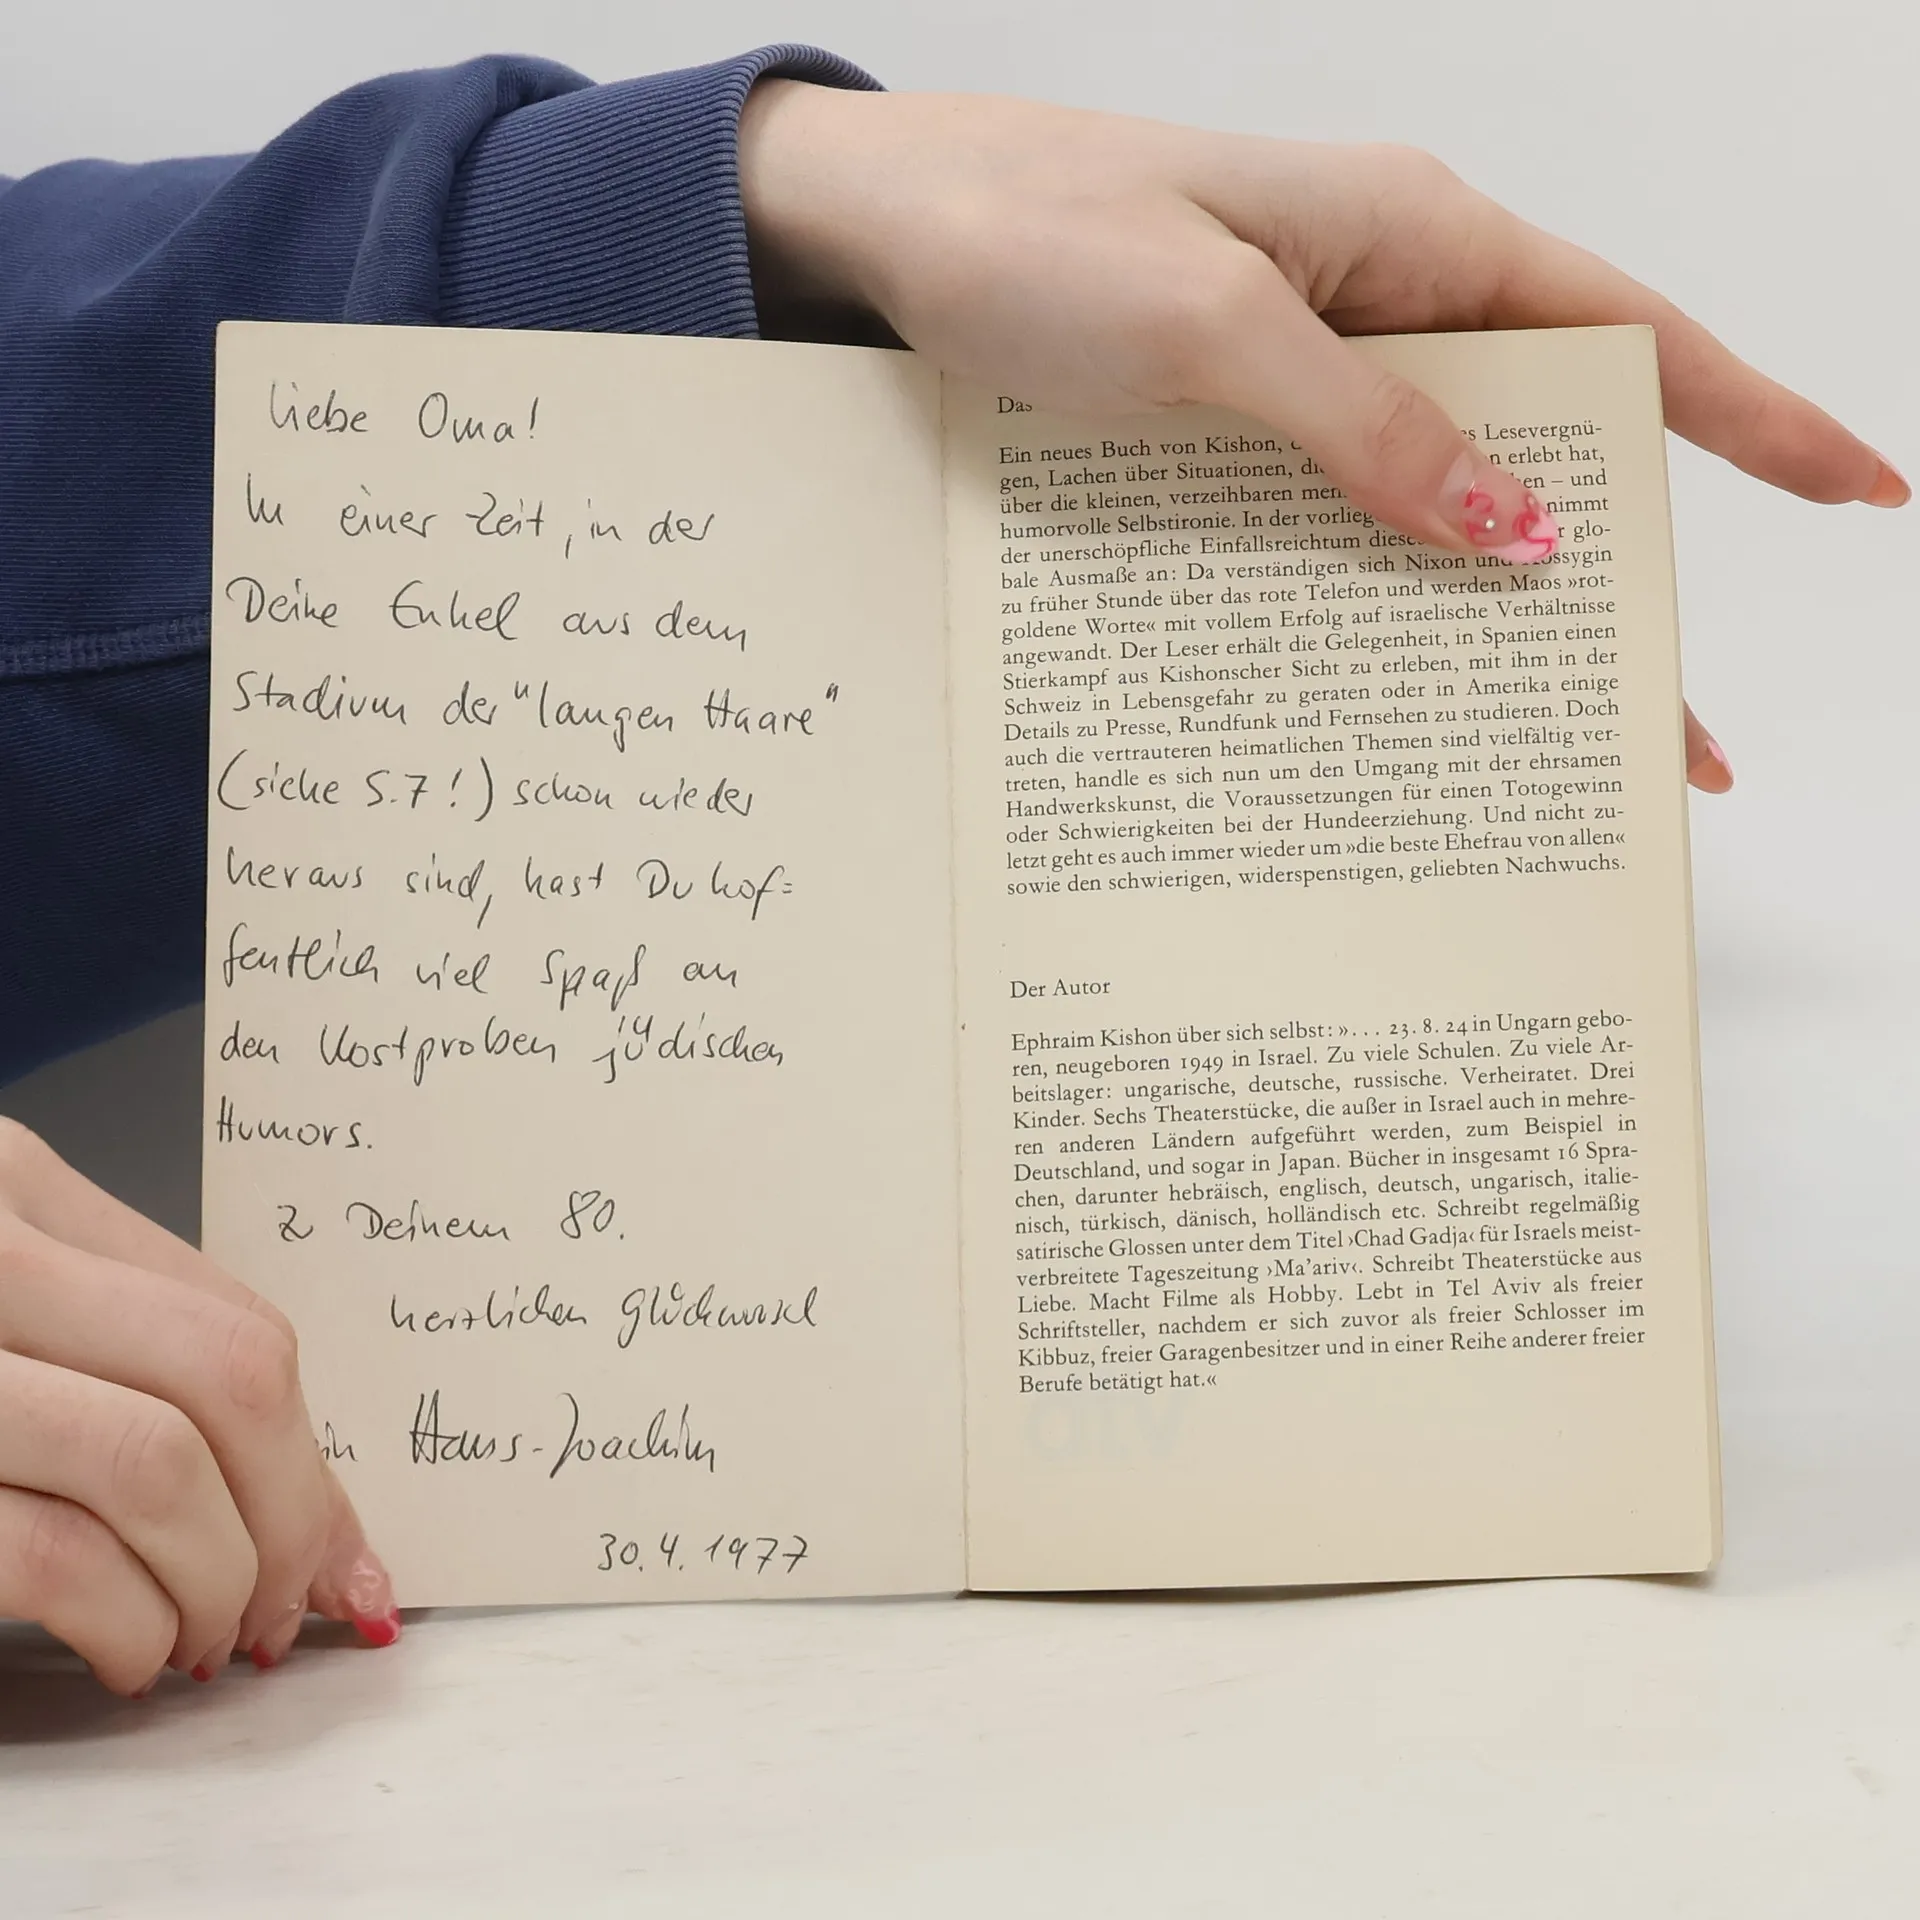 Liebe Oma!
In einer Zeit, in der
Deine Enkel aus dem
Stadium der "langen Haare"
(siehe S. 7!) schon wieder
heraus sind, hast Du hof=
fentlich viel Spaß an
den Kostproben jüdischen
Humors.
Z Deinem 80.
herzlichen Glückwunsch
Hans-Joachim
30. 4. 1977
Das
Ein neues Buch von Kishon,
Lesevergnü-
gen, Lachen über Situationen,
erlebt hat,
über die kleinen, verzeihbaren
– und
humorvolle Selbstironie. In der
nimmt
der unerschöpfliche Einfallsreichtum
glo-
bale Ausmaße an: Da verständigen sich Nixon und
zu früher Stunde über das rote Telefon und werden Maos »rot-
goldene Worte« mit vollem Erfolg auf israelische Verhältnisse
angewandt. Der Leser erhält die Gelegenheit, in Spanien einen
Stierkampf aus Kishonscher Sicht zu erleben, mit ihm in der
Schweiz in Lebensgefahr zu geraten oder in Amerika einige
Details zu Presse, Rundfunk und Fernsehen zu studieren. Doch
auch die vertrauteren heimatlichen Themen sind vielfältig ver-
treten, handle es sich nun um den Umgang mit der ehrsamen
Handwerkskunst, die Voraussetzungen für einen Totogewinn
oder Schwierigkeiten bei der Hundeerziehung. Und nicht zu-
letzt geht es auch immer wieder um »die beste Ehefrau von allen«
sowie den schwierigen, widerspenstigen, geliebten Nachwuchs.
Der Autor
Ephraim Kishon über sich selbst: ». . . 23. 8. 24 in Ungarn gebo-
ren, neugeboren 1949 in Israel. Zu viele Schulen. Zu viele Ar-
beitslager: ungarische, deutsche, russische. Verheiratet. Drei
Kinder. Sechs Theaterstücke, die außer in Israel auch in mehre-
ren anderen Ländern aufgeführt werden, zum Beispiel in
Deutschland, und sogar in Japan. Bücher in insgesamt 16 Spra-
chen, darunter hebräisch, englisch, deutsch, ungarisch, italie-
nisch, türkisch, dänisch, holländisch etc. Schreibt regelmäßig
satirische Glossen unter dem Titel ›Chad Gadja‹ für Israels meist-
verbreitete Tageszeitung ›Ma'ariv‹. Schreibt Theaterstücke aus
Liebe. Macht Filme als Hobby. Lebt in Tel Aviv als freier
Schriftsteller, nachdem er sich zuvor als freier Schlosser im
Kibbuz, freier Garagenbesitzer und in einer Reihe anderer freier
Berufe betätigt hat.«